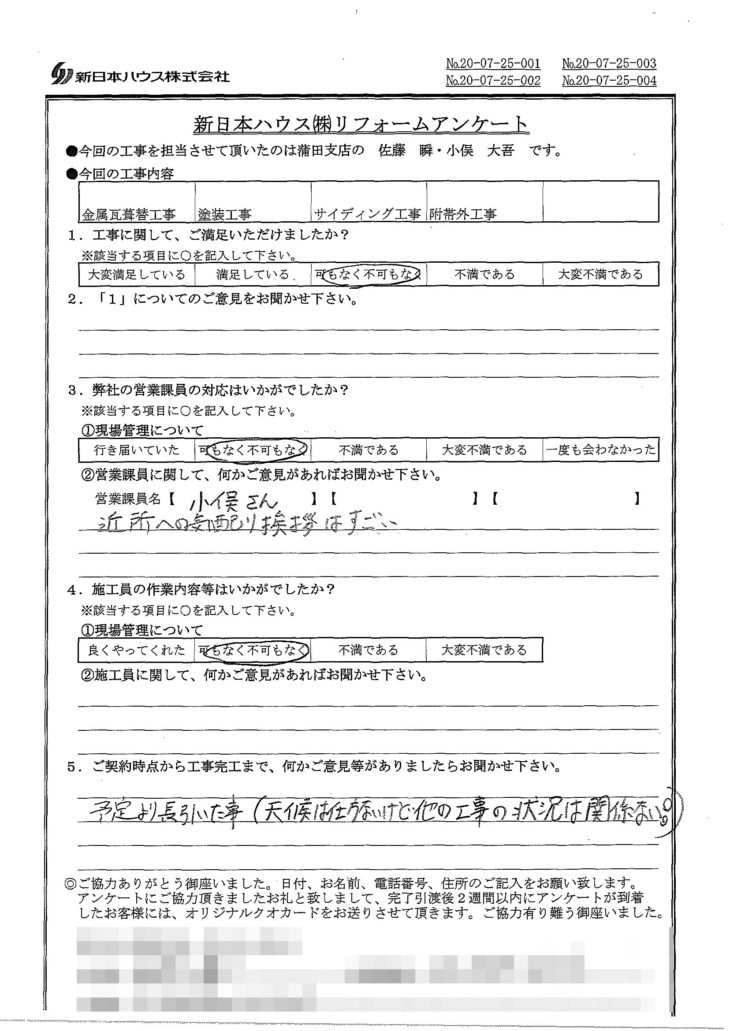 新日本ハウス株式会社
№20-07-25-001 №20-07-25-003
№20-07-25-002 №20-07-25-004
新日本ハウス㈱リフォームアンケート
●今回の工事を担当させて頂いたのは蒲田支店の 佐藤 瞬・小俣 大吾 です。
●今回の工事内容
金属瓦葺替工事 塗装工事 サイディング工事 附帯外工事
1．工事に関して、ご満足いただけましたか？
※該当する項に○を記入して下さい。
大変満足している 満足している 可もなく不可もなく 不満である 大変不満である
2．「1」についてのご意見をお聞かせ下さい。
3．弊社の営業課員の対応はいかがでしたか？
※該当する項目に○を記入して下さい。
①現場管理について
行き届いていた 可もなく不可もなく 不満である 大変不満である 一度も会わなかった
②営業課員に関して、何かご意見があればお聞かせ下さい。
営業課員名【 小俣さん 】【 】【 】
近所への気配り挨拶はすごい
4．施工員の作業内容等はいかがでしたか？
※該当する項目に○を記入して下さい。
①現場管理について
良くやってくれた 可もなく不可もなく 不満である 大変不満である
②施工員に関して、何かご意見があればお聞かせ下さい。
5．ご契約時点から工事完工まで、何かご意見等がありましたらお聞かせ下さい。
予定より長引いた事（天候は仕方ないけど他の工事の状況は関係ない。）
◎ご協力ありがとう御座いました。日付、お名前、電話番号、住所のご記入をお願い致します。
アンケートにご協力頂きましたお礼と致しまして、完了引渡後２週間以内にアンケートが到着
したお客様には、オリジナルクオカードをお送りさせて頂きます。ご協力有り難う御座いました。